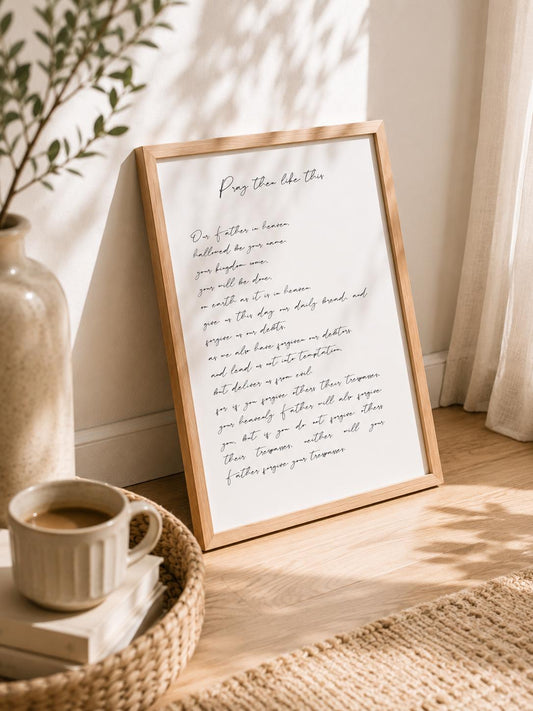 Pray then like this
Our Father in heaven,
hallowed be your name.
your kingdom come,
your will be done,
on earth as it is in heaven.
give us this day our daily bread, and
forgive us our debts,
as we also have forgiven our debtors.
and lead us not into temptation,
but deliver us from evil.
for if you forgive others their trespasses,
your heavenly Father will also forgive
you, but if you do not forgive others
their trespasses, neither will your
Father forgive your trespasses.